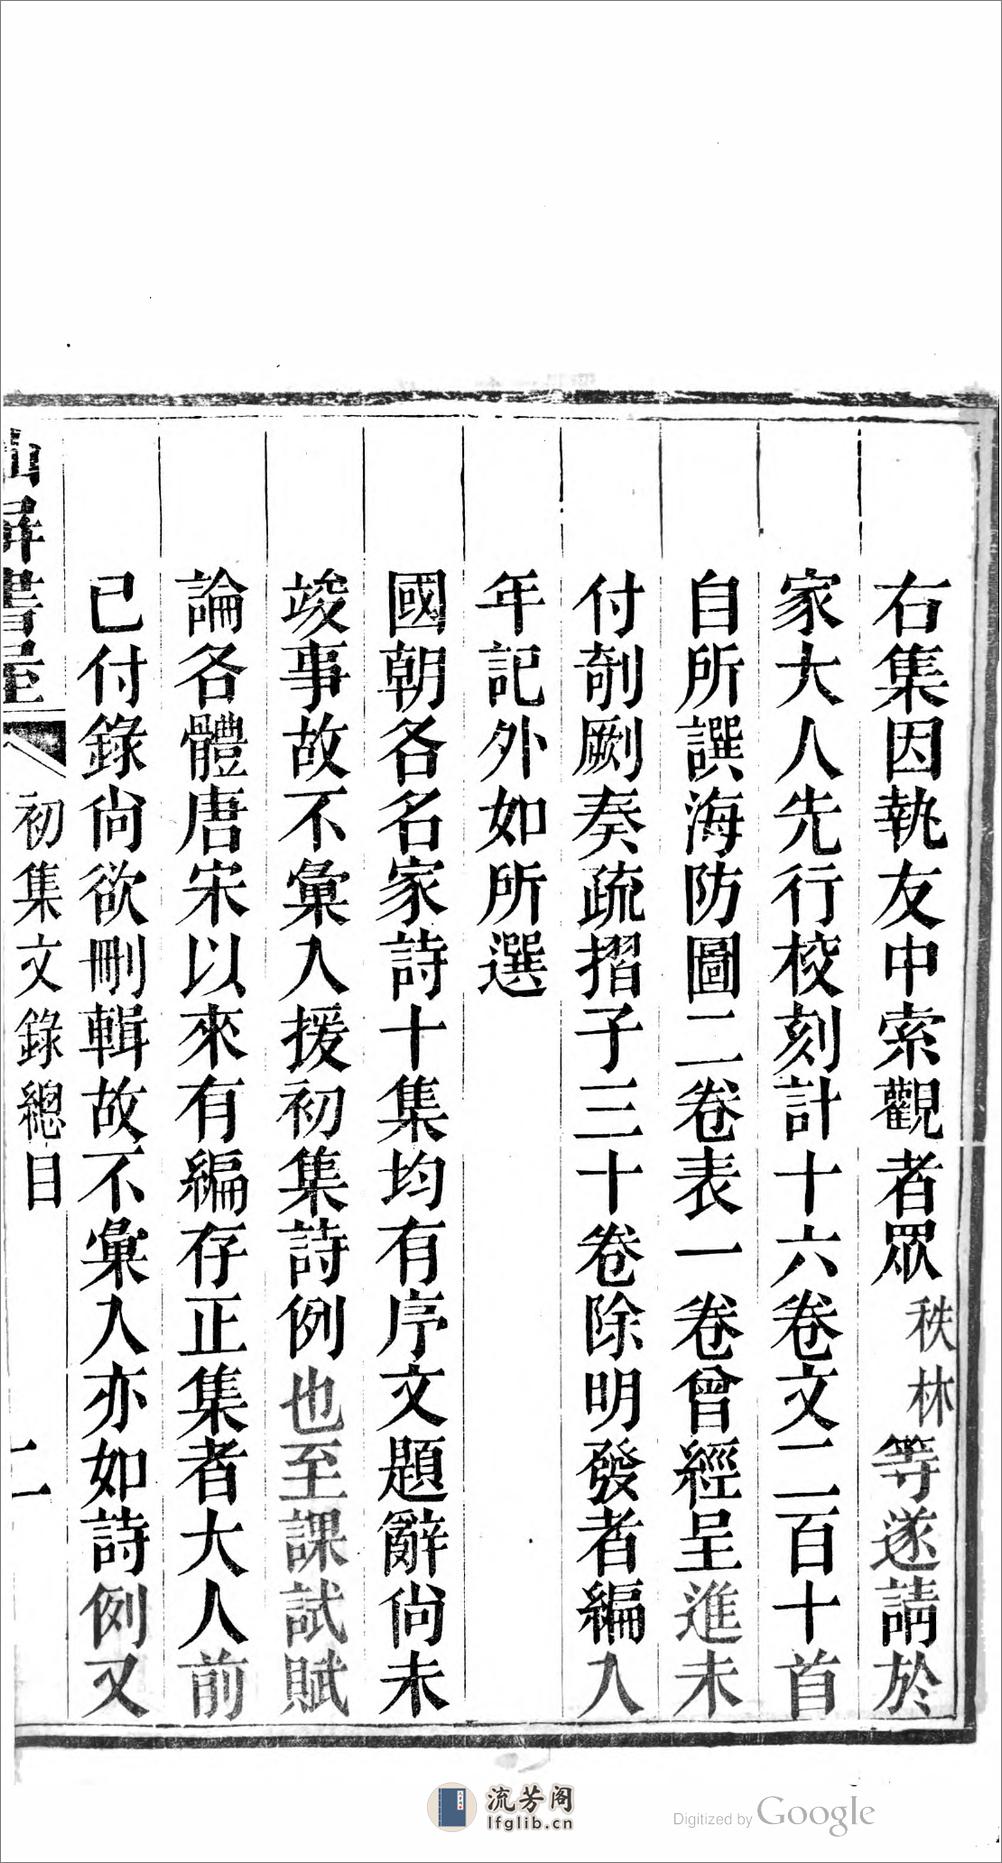 右集因執友中索觀者眾秩林等遂請於
家大人先行校刻計十六卷文二百十首
自所譔海防圖二卷表一卷曾經呈進未
付剞劂奏疏摺子三十卷除明發者編入
年記外如所選
國朝各名家詩十集均有序文題辭尚未
竣事故不彙入援初集詩例也至課試賦
論各體唐宋以來有編存正集者大人前
已付錄尚欲刪輯故不彙入亦如詩例又
山屏書屋 初集文錄總目 二
流芳阁
lfglib.cn
Digitized by Google